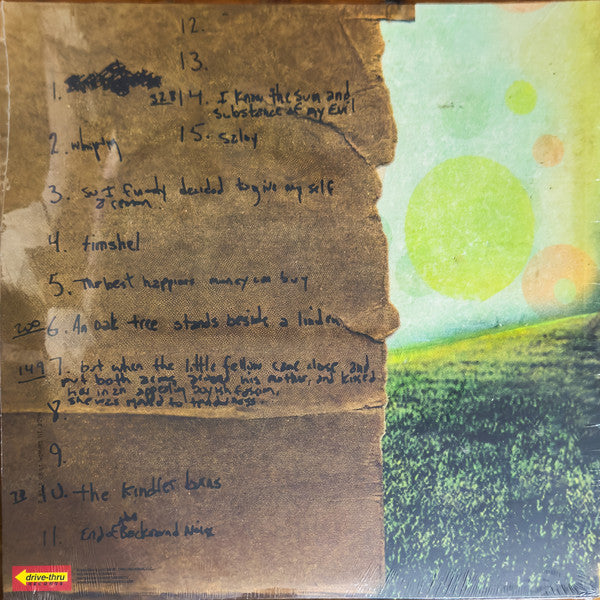 12.
13.
1.
328 14. I know the Sum and
substance of my Evil
2. whipting
15. Szloy
3. So I finaly decided to give my self
a reason.
4. timshel
5. The best happiness money can buy
200 6. An oak tree stands beside a linden
149 7. but when the little fellow came close and
put both arms around his mother, and kissed
her in an appealing boyish fasion,
she was moved to tenderness.
8.
9.
10. the Kindler burns
11. End of Backround Noise
drive-thru
RECORDS